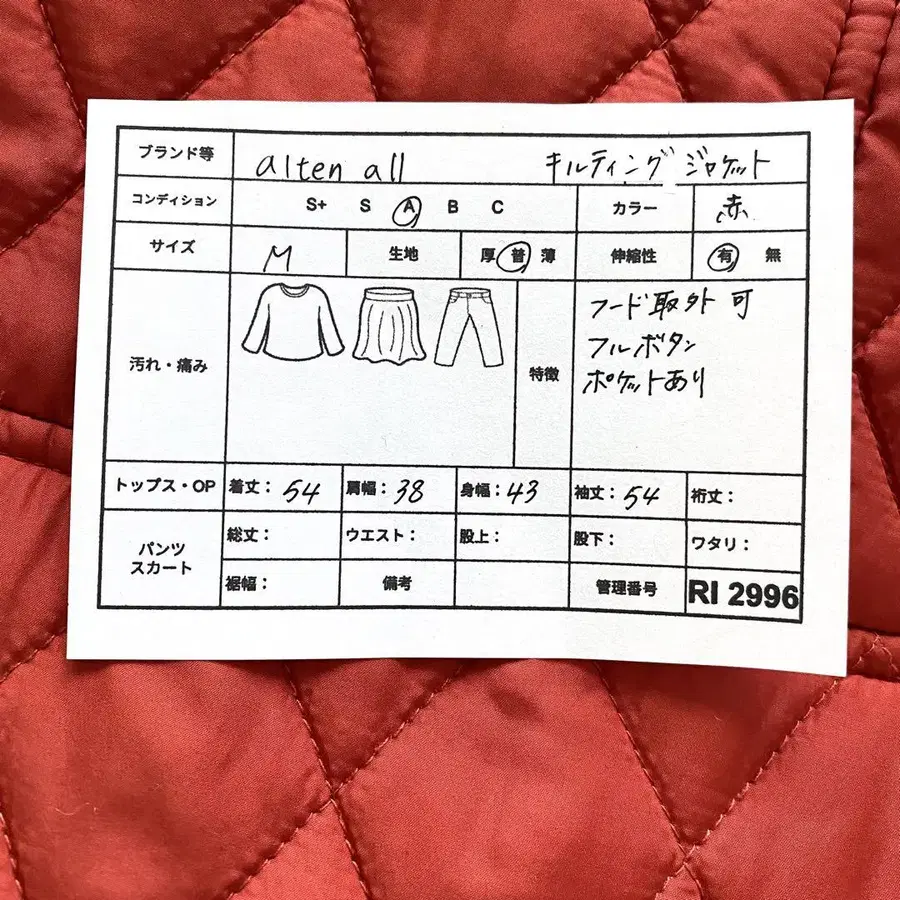 ブランド等 alten all キルティング ジャケット
コンディション S+ S A B C カラー 赤
サイズ M 生地 厚 普 薄 伸縮性 有 無
汚れ・痛み 特徴
フード取外可
フルボタン
ポケットあり
トップス・OP 着丈：54 肩幅：38 身幅：43 袖丈：54 裄丈：
パンツ
スカート
総丈： ウエスト： 股上： 股下： ワタリ：
裾幅： 備考 管理番号 RI 2996